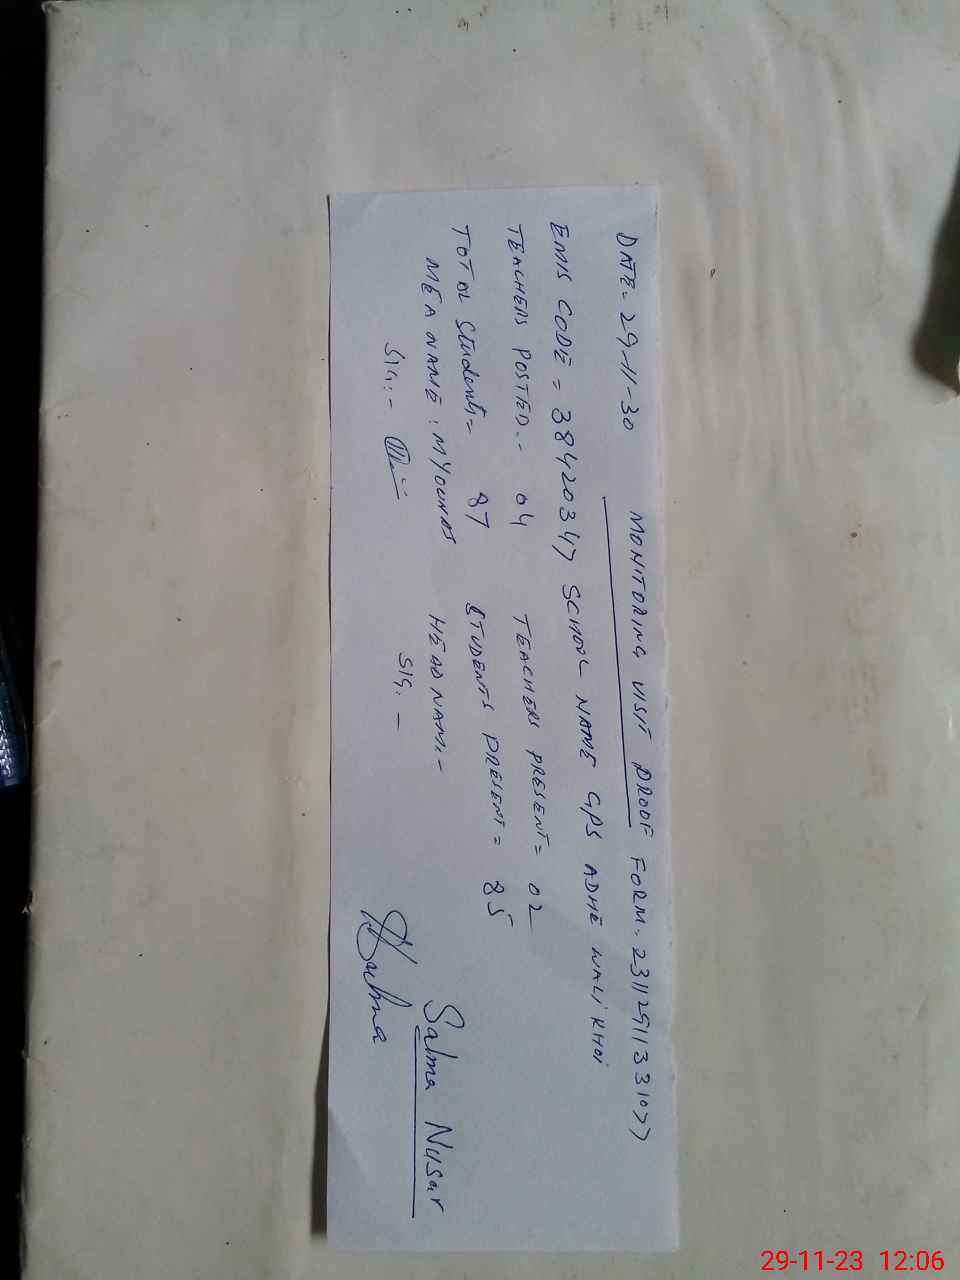 DATE- 29-11-30 MONITORING VISIT PROOF FORM. 23112911331077
EMIS CODE = 38420347 SCHOOL NAME GPS ADHE WALI KHOI
TEACHERS POSTED.- 04 TEACHERS PRESENT= 02
TOTAL Students= 87 STUDENTS PRESENT= 85
MEA NAME: M YOUNAS HEAD NAM:- Salma Nusar
SIG:- SIG. - Salma
29-11-23 12:06